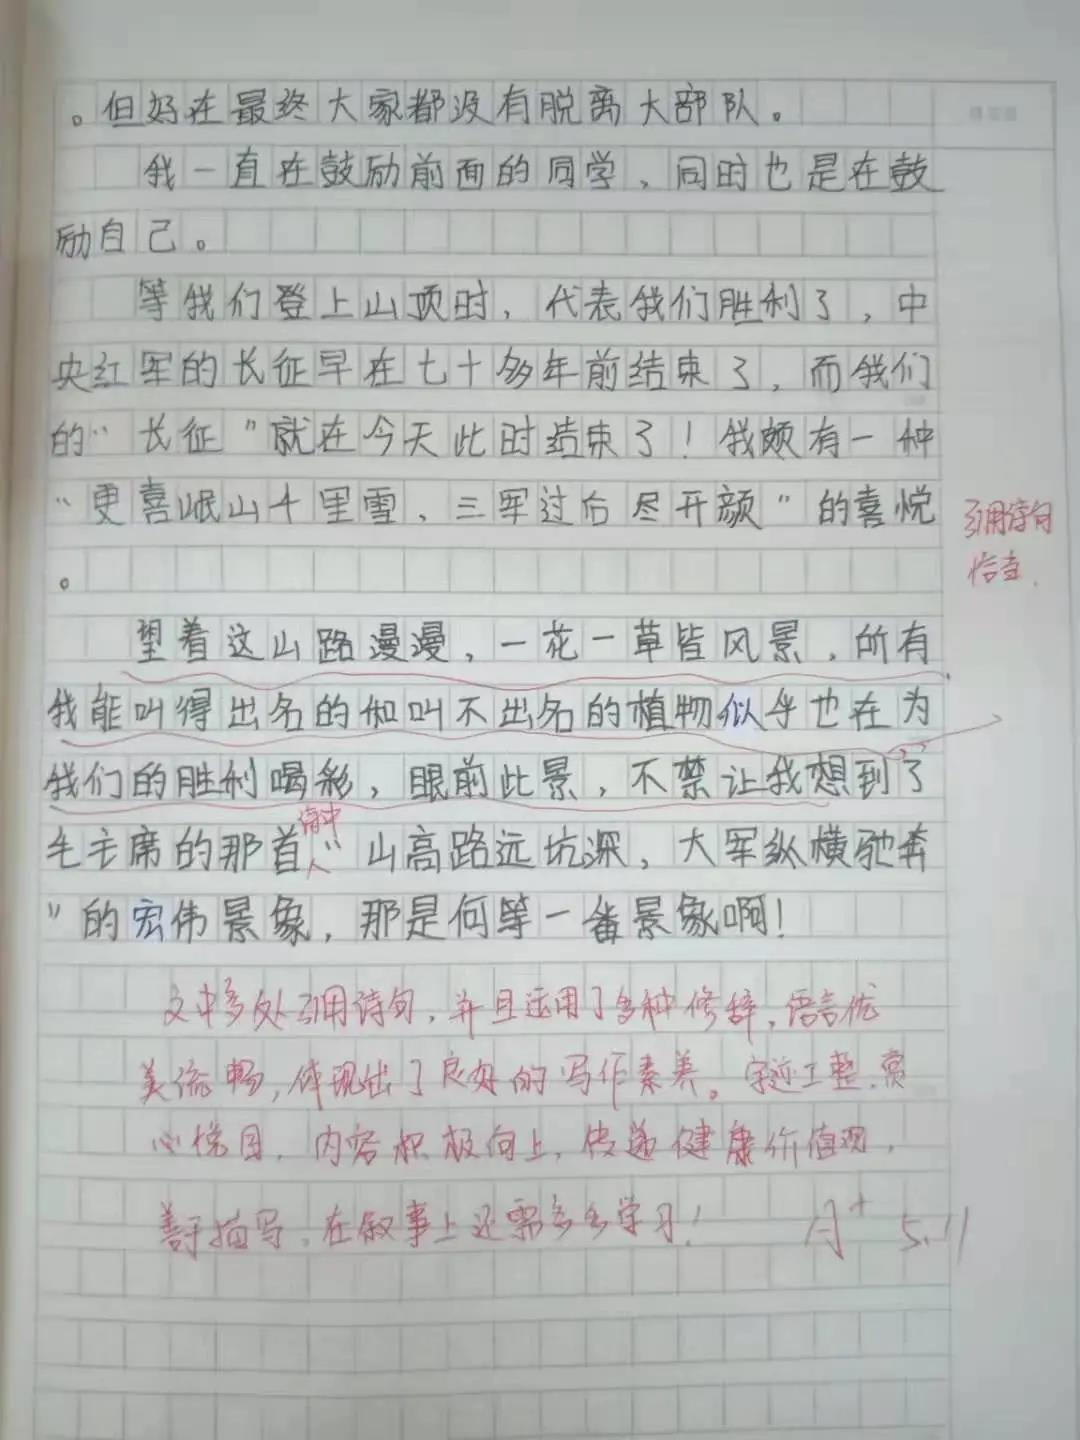 。但好在最终大家都没有脱离大部队。
我一直在鼓励前面的同学，同时也是在鼓
励自己。
等我们登上山顶时，代表我们胜利了，中
央红军的长征早在七十多年前结束了，而我们
的“长征”就在今天此时结束了！我颇有一种
“更喜岷山千里雪，三军过后尽开颜”的喜悦
。
引用诗句
恰当.
望着这山路漫漫，一花一草皆风景，所有
我能叫得出名的和叫不出名的植物似乎也在为
我们的胜利喝彩，眼前此景，不禁让我想到了
诗中
毛主席的那首“山高路远坑深，大军纵横驰奔
”的宏伟景象，那是何等一番景象啊！
文中多处引用诗句，并且运用了多种修辞，语言优
美流畅，体现出了良好的写作素养。字迹工整，赏
心悦目，内容积极向上，传递健康价值观，
善于描写，在叙事上还需多多学习！ A+ 5.11